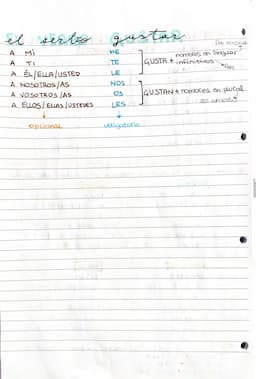 el verbo gustar
A MÍ ME
A TI TE
A ÉL/ELLA/USTED LE
A NOSOTROS/AS NOS
A VOSOTROS/AS OS
A ELLOS/ELLAS/USTEDES LES
GUSTA + nombres en singular
infinitivos
GUSTAN + nombres en plural
opcional obligatorio